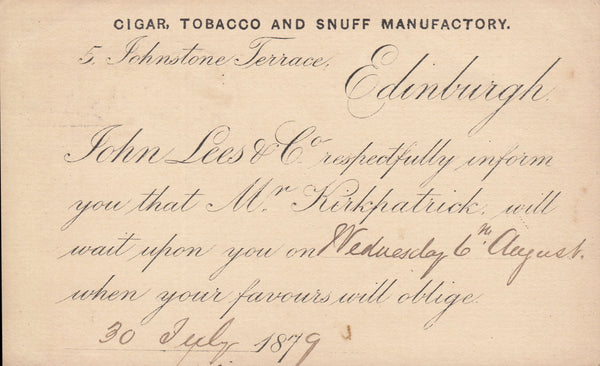 CIGAR, TOBACCO AND SNUFF MANUFACTORY.
5, Johnstone Terrace,
Edinburgh.
John Lees & Co. respectfully inform
you that Mr. Kirkpatrick, will
wait upon you on Wednesday 6th August.
when your favours will oblige.
30 July 1879